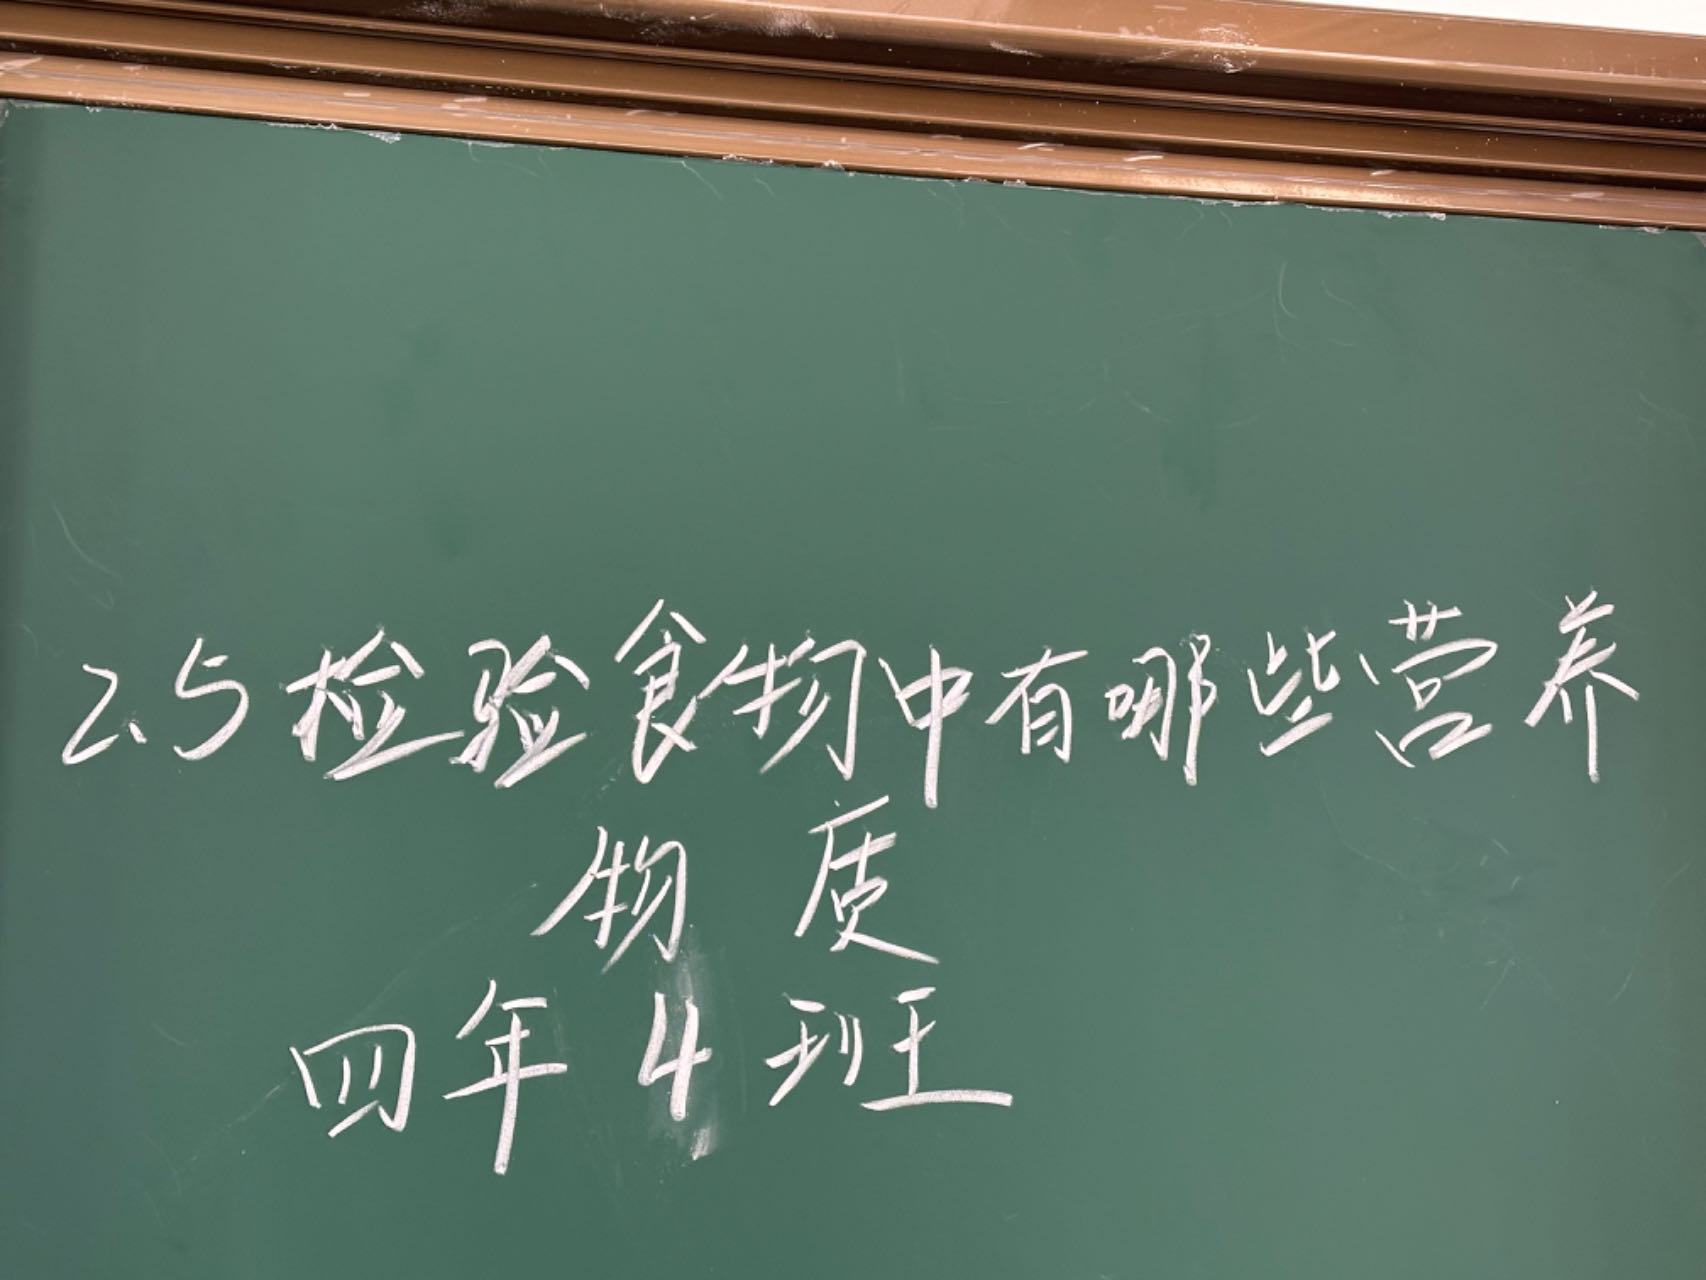 2.5检验食物中有哪些营养
物质
四年4班